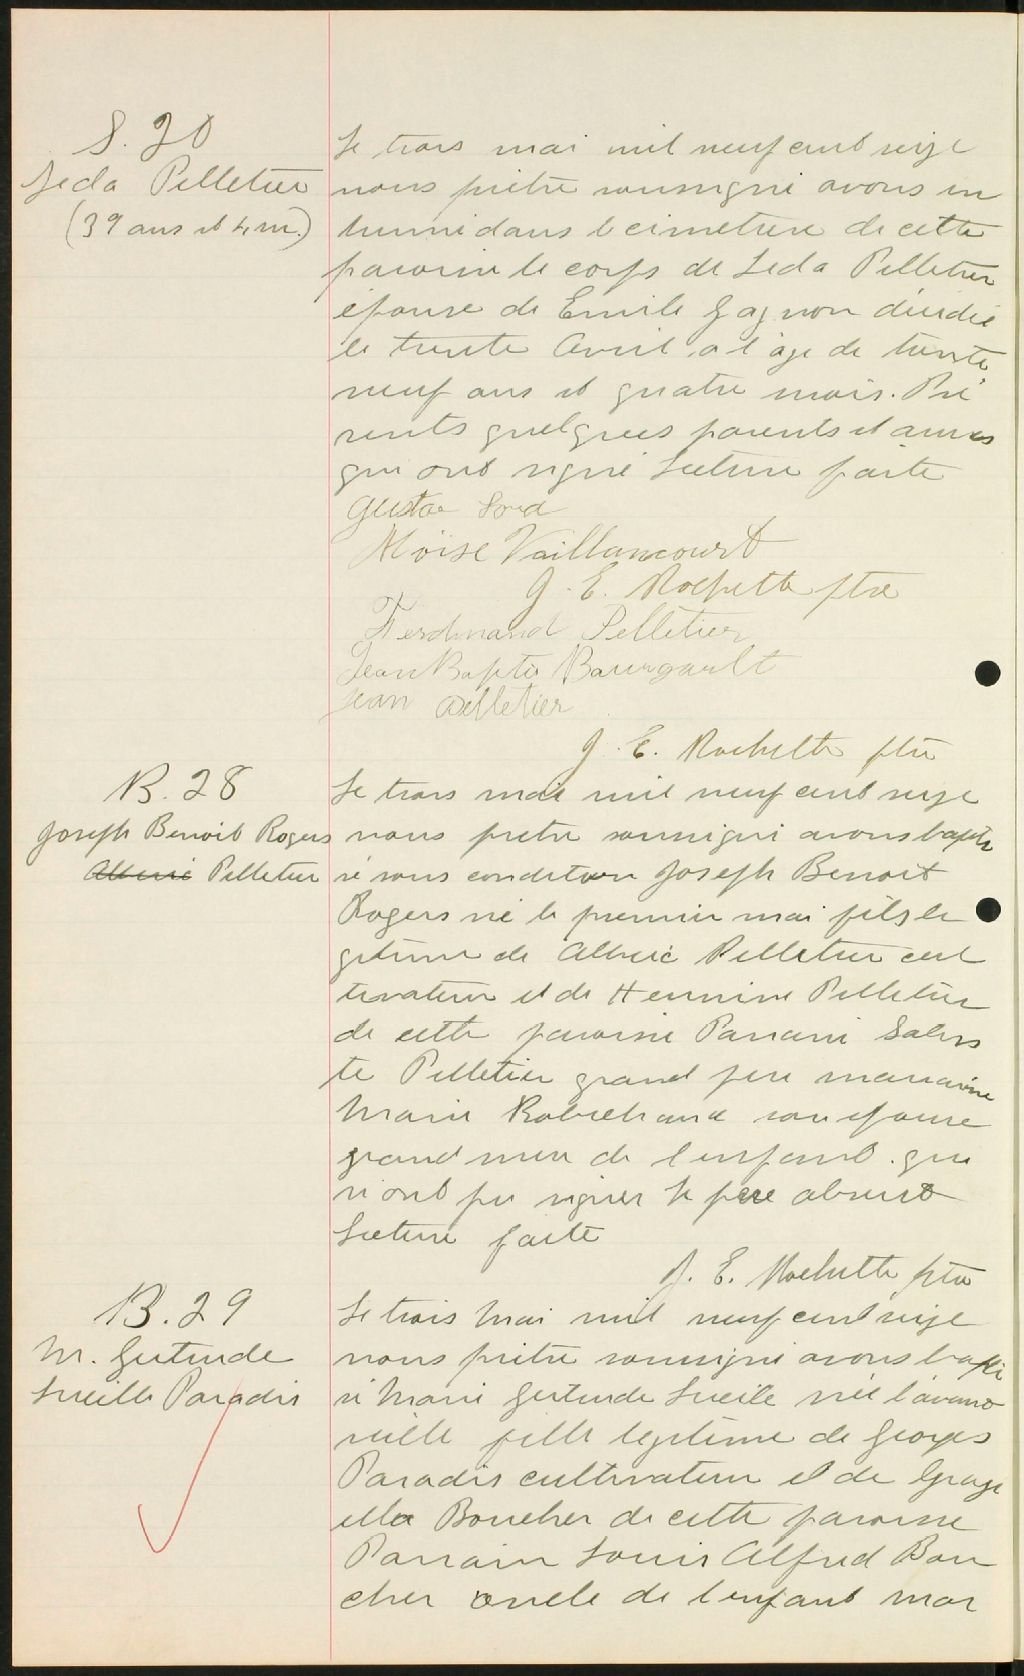 S. 20
Leda Pelletier
(39 ans et 4 m.)
Le trois mai mil neuf cent seize
nous prêtre soussigné avons in
humé dans le cimetière de cette
paroisse le corps de Leda Pelletier
épouse de Emile Gagnon décédée
le trente Avril à l'âge de trente
neuf ans et quatre mois. Pré
sents quelques parents et amis
qui ont signé Lecture faite
Gustave
Moïse Vaillancourt
J. E. Rochette ptre
Ferdinand Pelletier
Jean Bapte Bourgault
Jean Pelletier
J. E. Rochette ptre
B. 28
Joseph Benoit Rogers
Alberic Pelletier
Le trois mai mil neuf cent seize
nous prêtre soussigné avons bapti
sé sous condition Joseph Benoit
Rogers né le premier mai fils lé
gitime de Alberic Pelletier cul
tivateur et de Hermine Pelletier
de cette paroisse Parrain Salus
te Pelletier grand père marraine
Marie Robichaud son épouse
grand mère de l'enfant qui
n'ont pu signer le père absent
Lecture faite
J. E. Rochette ptre
B. 29
M. Gertrude
Lucille Paradis
Le trois Mai mil neuf cent seize
nous prêtre soussigné avons bapti
sé Marie Gertrude Lucile née l'avant
veille fille legitime de Georges
Paradis cultivateur et de Grazi
ella Boucher de cette paroisse
Parrain Louis Alfred Bou
cher oncle de l'enfant mar